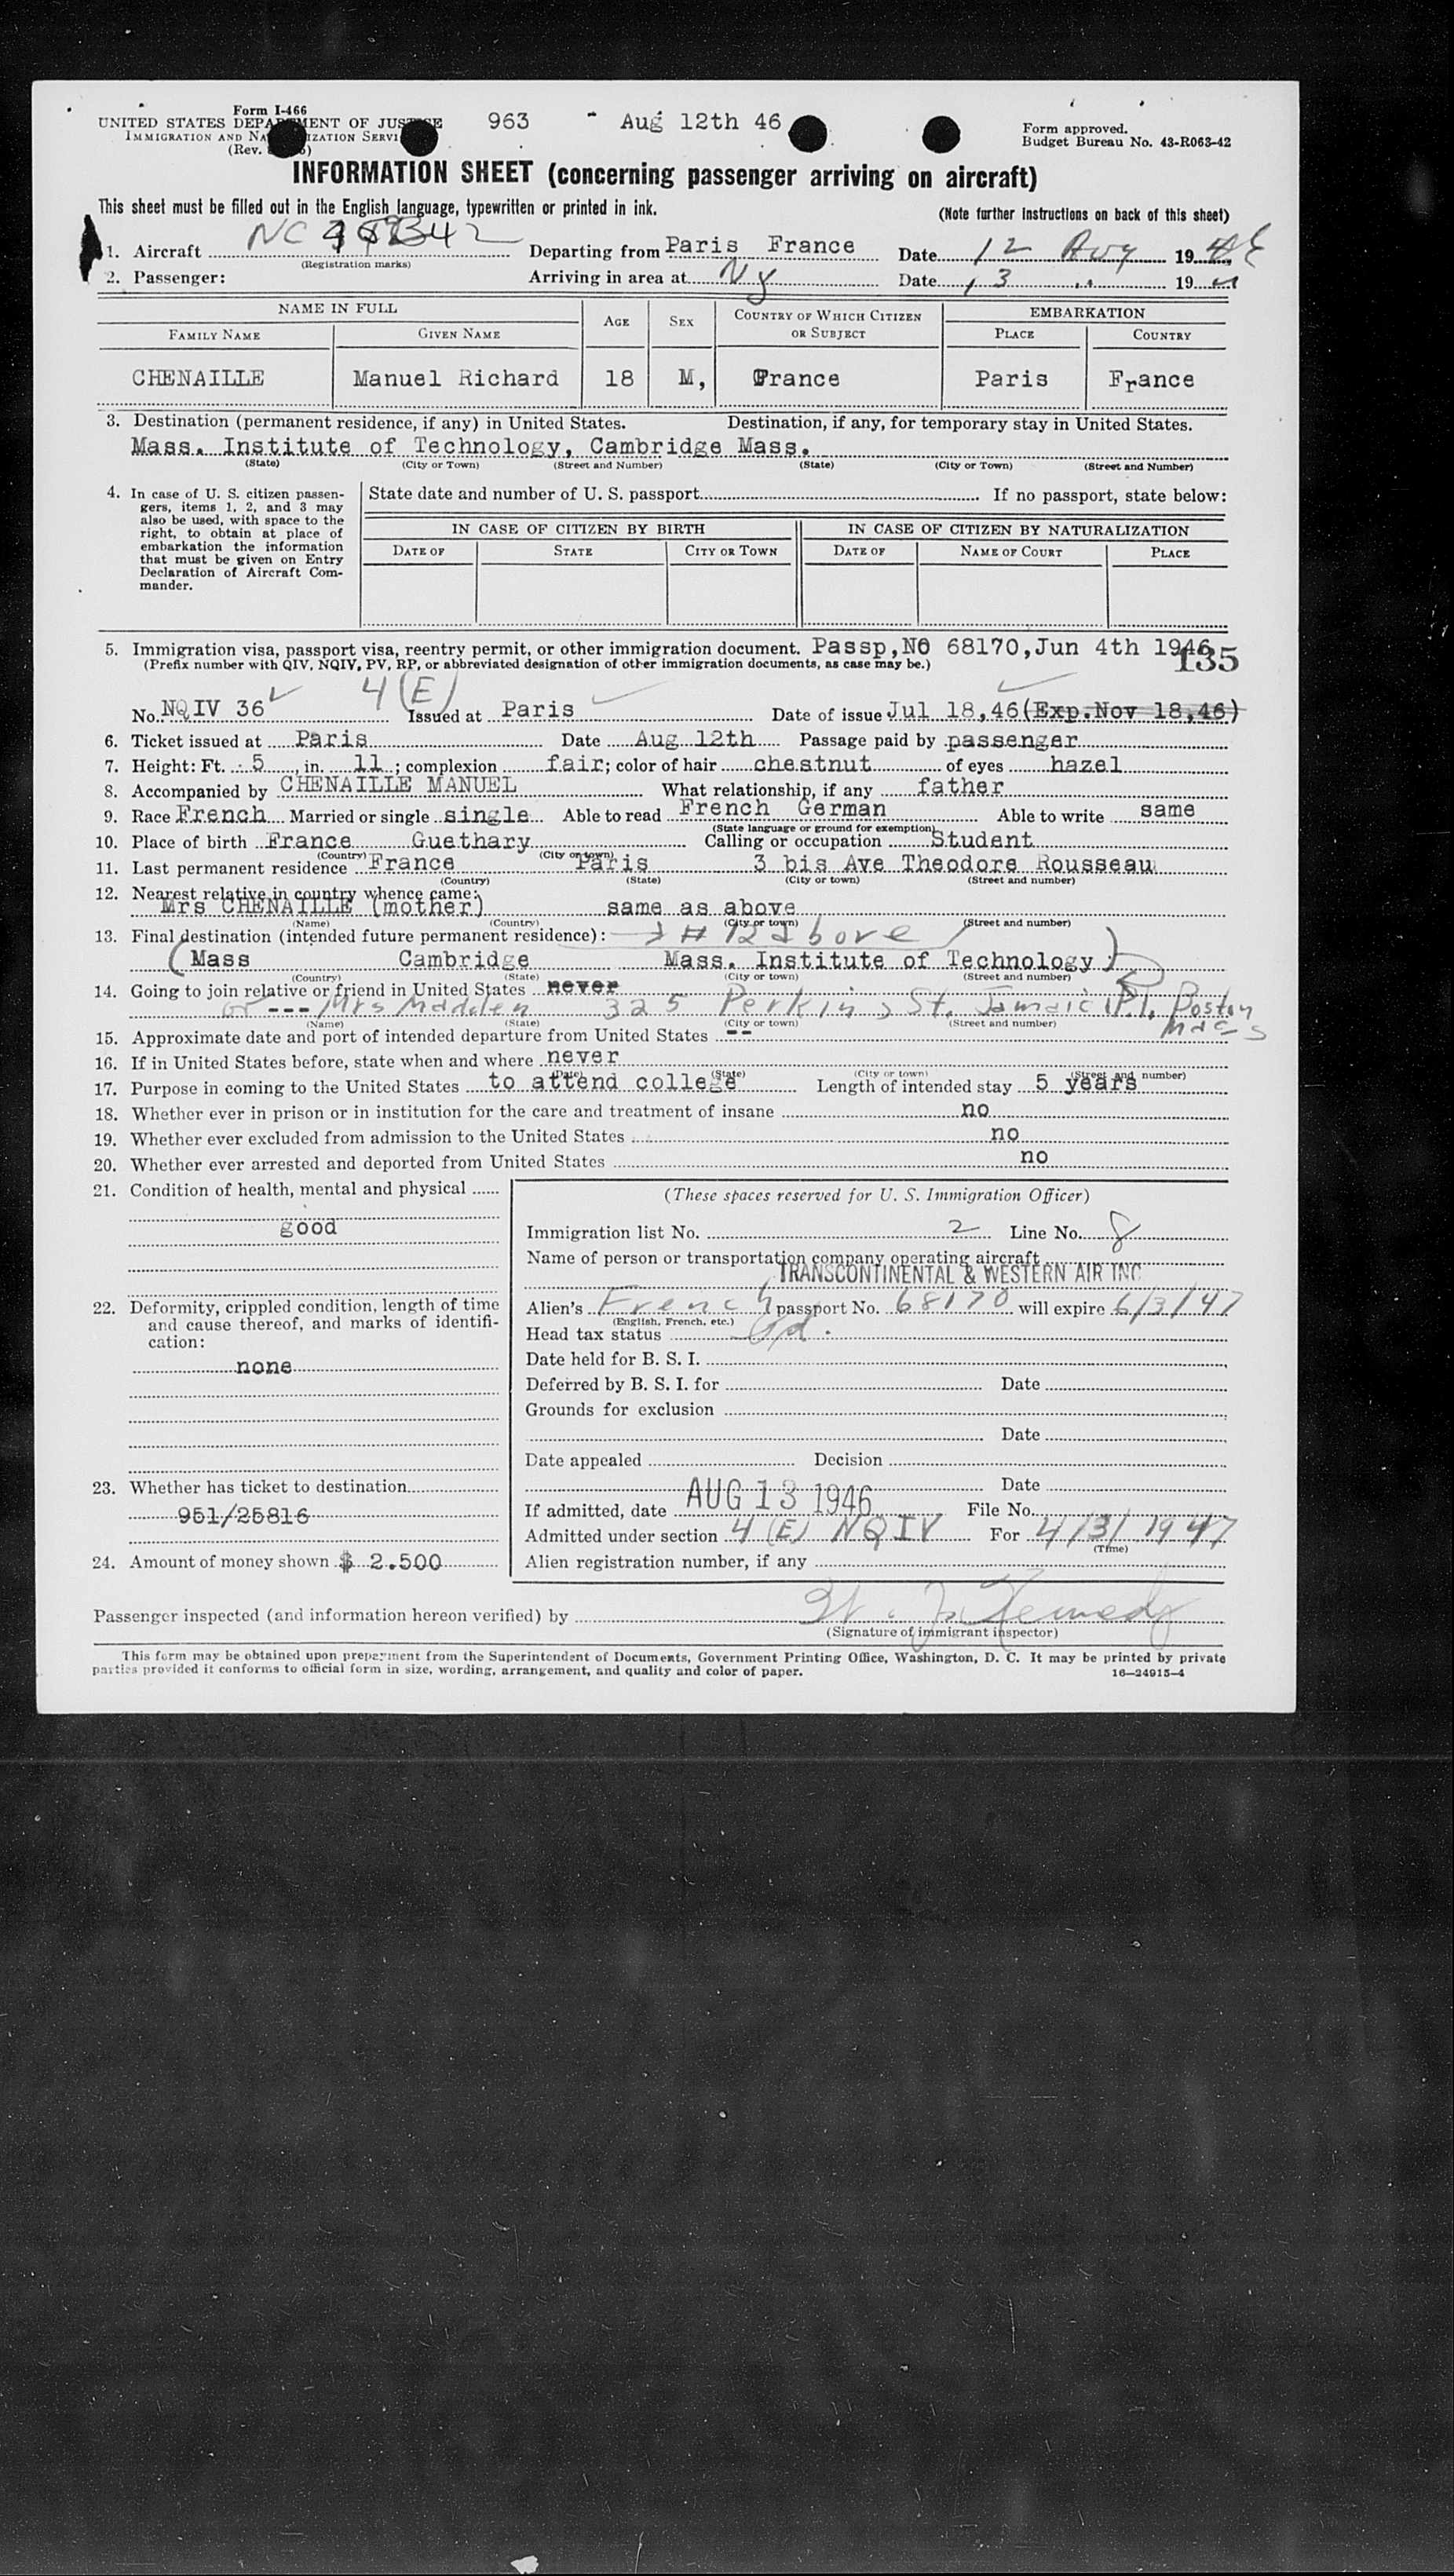 Form I-466
UNITED STATES DEPARTMENT OF JUSTICE 963 - Aug 12th 46
IMMIGRATION AND NATURALIZATION SERVICE
(Rev.
Form approved.
Budget Bureau No. 43-R063-42
INFORMATION SHEET (concerning passenger arriving on aircraft)
This sheet must be filled out in the English language, typewritten or printed in ink. (Note further instructions on back of this sheet)
1. Aircraft NC Departing from Paris France Date 12 Aug 1946
(Registration marks)
2. Passenger: Arriving in area at NY Date 13 " 19 "
NAME IN FULL AGE SEX COUNTRY OF WHICH CITIZEN OR SUBJECT EMBARKATION
FAMILY NAME GIVEN NAME PLACE COUNTRY
CHENAILLE Manuel Richard 18 M, France Paris France
3. Destination (permanent residence, if any) in United States. Destination, if any, for temporary stay in United States.
Mass. Institute of Technology, Cambridge Mass.
(State) (City or Town) (Street and Number) (State) (City or Town) (Street and Number)
4. In case of U. S. citizen passen-
gers, items 1, 2, and 3 may
also be used, with space to the
right, to obtain at place of
embarkation the information
that must be given on Entry
Declaration of Aircraft Com-
mander.
State date and number of U. S. passport If no passport, state below:
IN CASE OF CITIZEN BY BIRTH IN CASE OF CITIZEN BY NATURALIZATION
DATE OF STATE CITY OR TOWN DATE OF NAME OF COURT PLACE
5. Immigration visa, passport visa, reentry permit, or other immigration document. Passp,NO 68170,Jun 4th 1946
(Prefix number with QIV, NQIV, PV, RP, or abbreviated designation of other immigration documents, as case may be.) 135
4(E)
No. NQIV 36 Issued at Paris Date of issue Jul 18,46(Exp.Nov 18,46)
6. Ticket issued at Paris Date Aug 12th Passage paid by passenger
7. Height: Ft. 5 in. 11 ; complexion fair; color of hair chestnut of eyes hazel
8. Accompanied by CHENAILLE MANUEL What relationship, if any father
9. Race French Married or single single Able to read French German Able to write same
(State language or ground for exemption)
10. Place of birth France Guethary Calling or occupation Student
(Country) (City or town)
11. Last permanent residence France Paris 3 bis Ave Theodore Rousseau
(Country) (State) (City or town) (Street and number)
12. Nearest relative in country whence came:
Mrs CHENAILLE (mother) same as above
(Name) (Country) (City or town) (Street and number)
13. Final destination (intended future permanent residence): # 12 above
(Mass Cambridge Mass. Institute of Technology)
(Country) (State) (City or town) (Street and number)
14. Going to join relative or friend in United States never
or --- Mrs Madden 325 Perkins St. Jamaica Pl. Boston
Mass
(Name) (State) (City or town) (Street and number)
15. Approximate date and port of intended departure from United States --
16. If in United States before, state when and where never
(Date) (State) (City or town) (Street and number)
17. Purpose in coming to the United States to attend college Length of intended stay 5 years
18. Whether ever in prison or in institution for the care and treatment of insane no
19. Whether ever excluded from admission to the United States no
20. Whether ever arrested and deported from United States no
21. Condition of health, mental and physical
good
22. Deformity, crippled condition, length of time
and cause thereof, and marks of identifi-
cation:
none
23. Whether has ticket to destination
951/25816
24. Amount of money shown $ 2.500
(These spaces reserved for U. S. Immigration Officer)
Immigration list No. 2 Line No. 8
Name of person or transportation company operating aircraft
TRANSCONTINENTAL & WESTERN AIR INC
Alien's French passport No. 68170 will expire 6/3/47
(English, French, etc.)
Head tax status Gd.
Date held for B. S. I.
Deferred by B. S. I. for Date
Grounds for exclusion
Date
Date appealed Decision
Date
If admitted, date AUG 13 1946 File No.
Admitted under section 4(E) NQIV For 4/3/1947
(Time)
Alien registration number, if any
Passenger inspected (and information hereon verified) by Kennedy
(Signature of immigrant inspector)
This form may be obtained upon prepayment from the Superintendent of Documents, Government Printing Office, Washington, D. C. It may be printed by private
parties provided it conforms to official form in size, wording, arrangement, and quality and color of paper. 16—24915-4